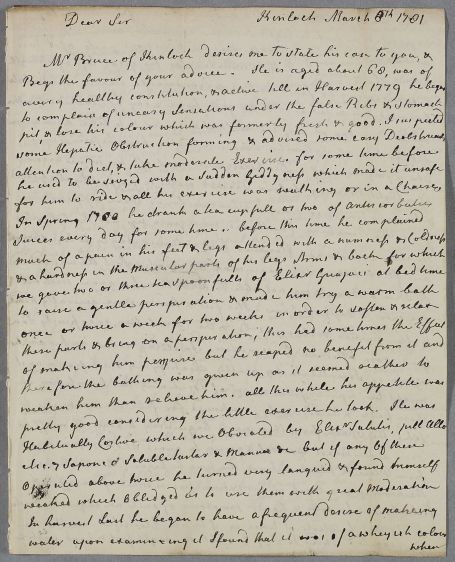 Dear Sir Kinloch March 8th 1781
Mr Bruce of Kinloch desires me to state his case to you, &
Begs the favour of your advice. He is aged about 68, was of
a very healthy constitution, & active till in Harvest 1779 he began
to complain of uneasy Sensations under the false Ribs & Stomach
pit & lose his colour which was formerly fresh & good, I suspected
some Hepatic Obstruction forming & advised some easy Deobstruents,
attention to diet, & take moderate Exercise. for some time before
he used to be seized with a Sudden Giddyness which made it unsafe
for him to ride & all his exercise was walking or in a Chaise,
In Spring 1780 he drank a tea cup full or two of antiscorbutic
Juices every day for some time. before this time he complained
much of a pain in his feet & legs attended with a numness & Coldness
& a hardness in the Muscular parts of his legs Arms & back for which
we gave two or three teaspoonfulls of Elixr Guajaci at bed time
to raise a gentle perspiration & made him try a warm bath
once or twice a week for two weeks in order to soften & relax
these parts & bring on a perspiration, this had some times the Effect
of making him perspire but he reaped no benefit from it and
therefore the bathing was given up as it seemed rather to
weaken him than relieve him. all this while his appetite was
pretty good considering the little exercise he took. He was
Habitually Costive which we Obviated by Elixr Salutis, pill Aloe
etic. & Sapone Soluble tartar & Manna &c but if any of these
Operated above twice he turned very languid & found himself
weaked which Obliedged us to use them with great Moderation
In harvest Last he began to have a frequent desire of makeing
water upon examineing it I found that it was of a wheyish colour
when